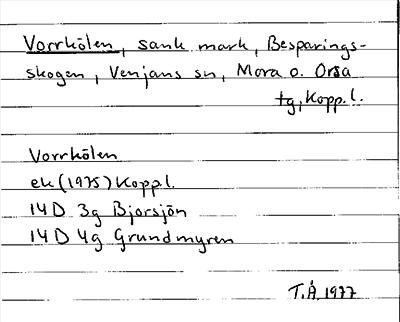 Vorrkölen, sank mark, Besparings-
skogen, Venjans sn, Mora o. Orsa
tg, Kopp.l.
Vorrkölen
ek (1975) Kopp.l.
14D 3g Bjorsjön
14D 4g Grundmyren
T.Å. 1977